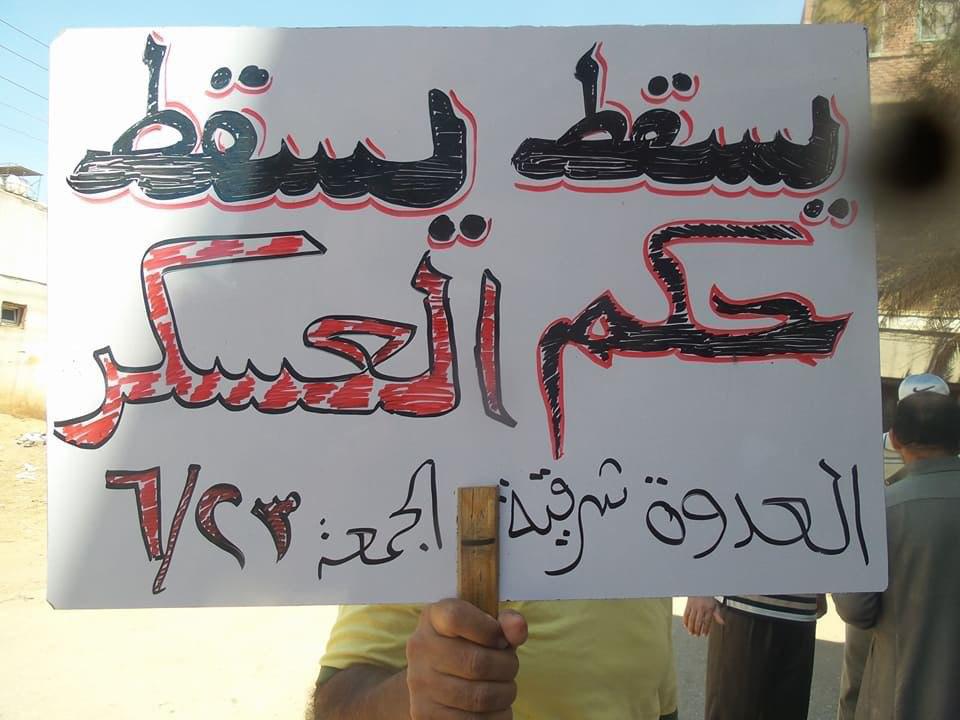 يسقط يسقط
حكم العسكر
العدوة شرقية الجمعة ٢٣/٦